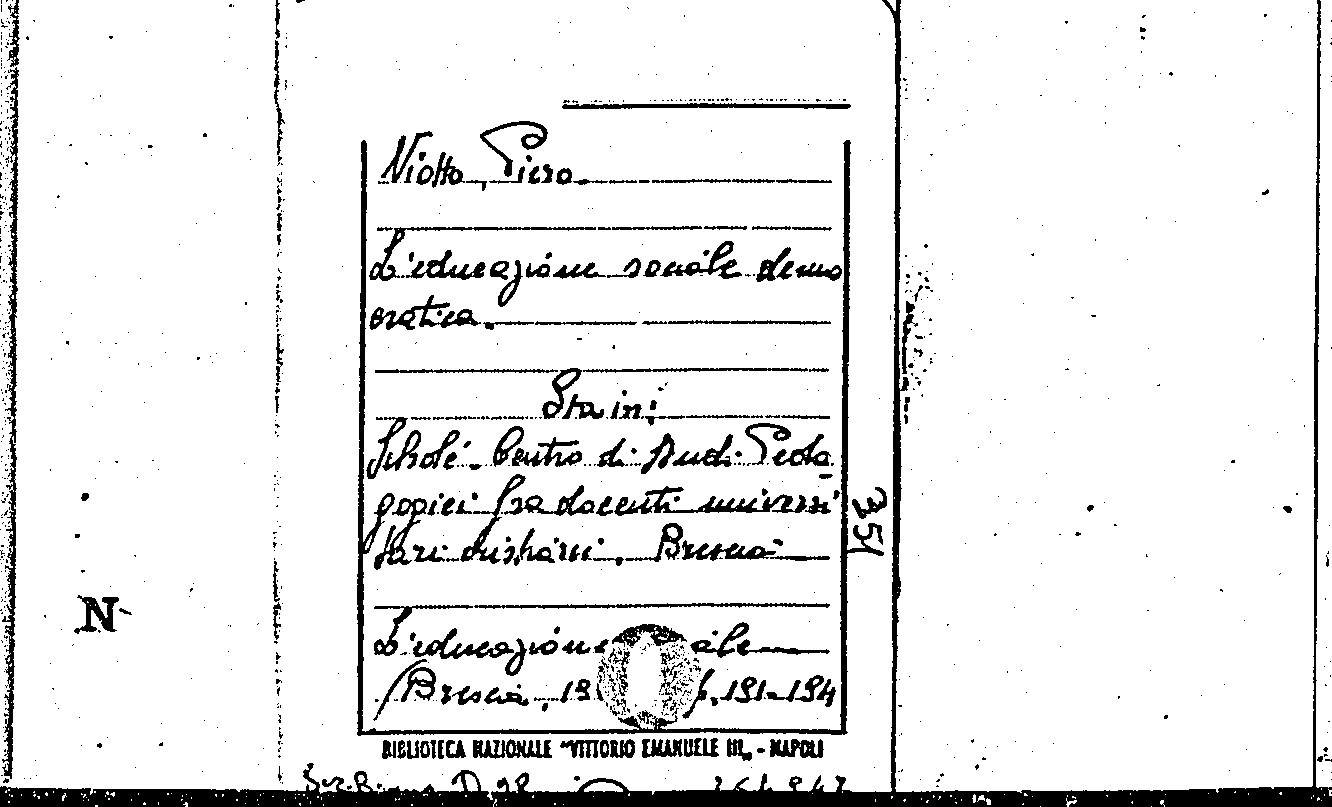 Viotto, Piero.
L'educazione sociale demo
cratica.
Sta in:
Scholé. Centro di Studi Peda
gogici fra docenti universi
tari cristiani. Brescia
L'educazione
(Brescia, 19 p. 191-194
351
N
BIBLIOTECA NAZIONALE "VITTORIO EMANUELE III„ - NAPOLI